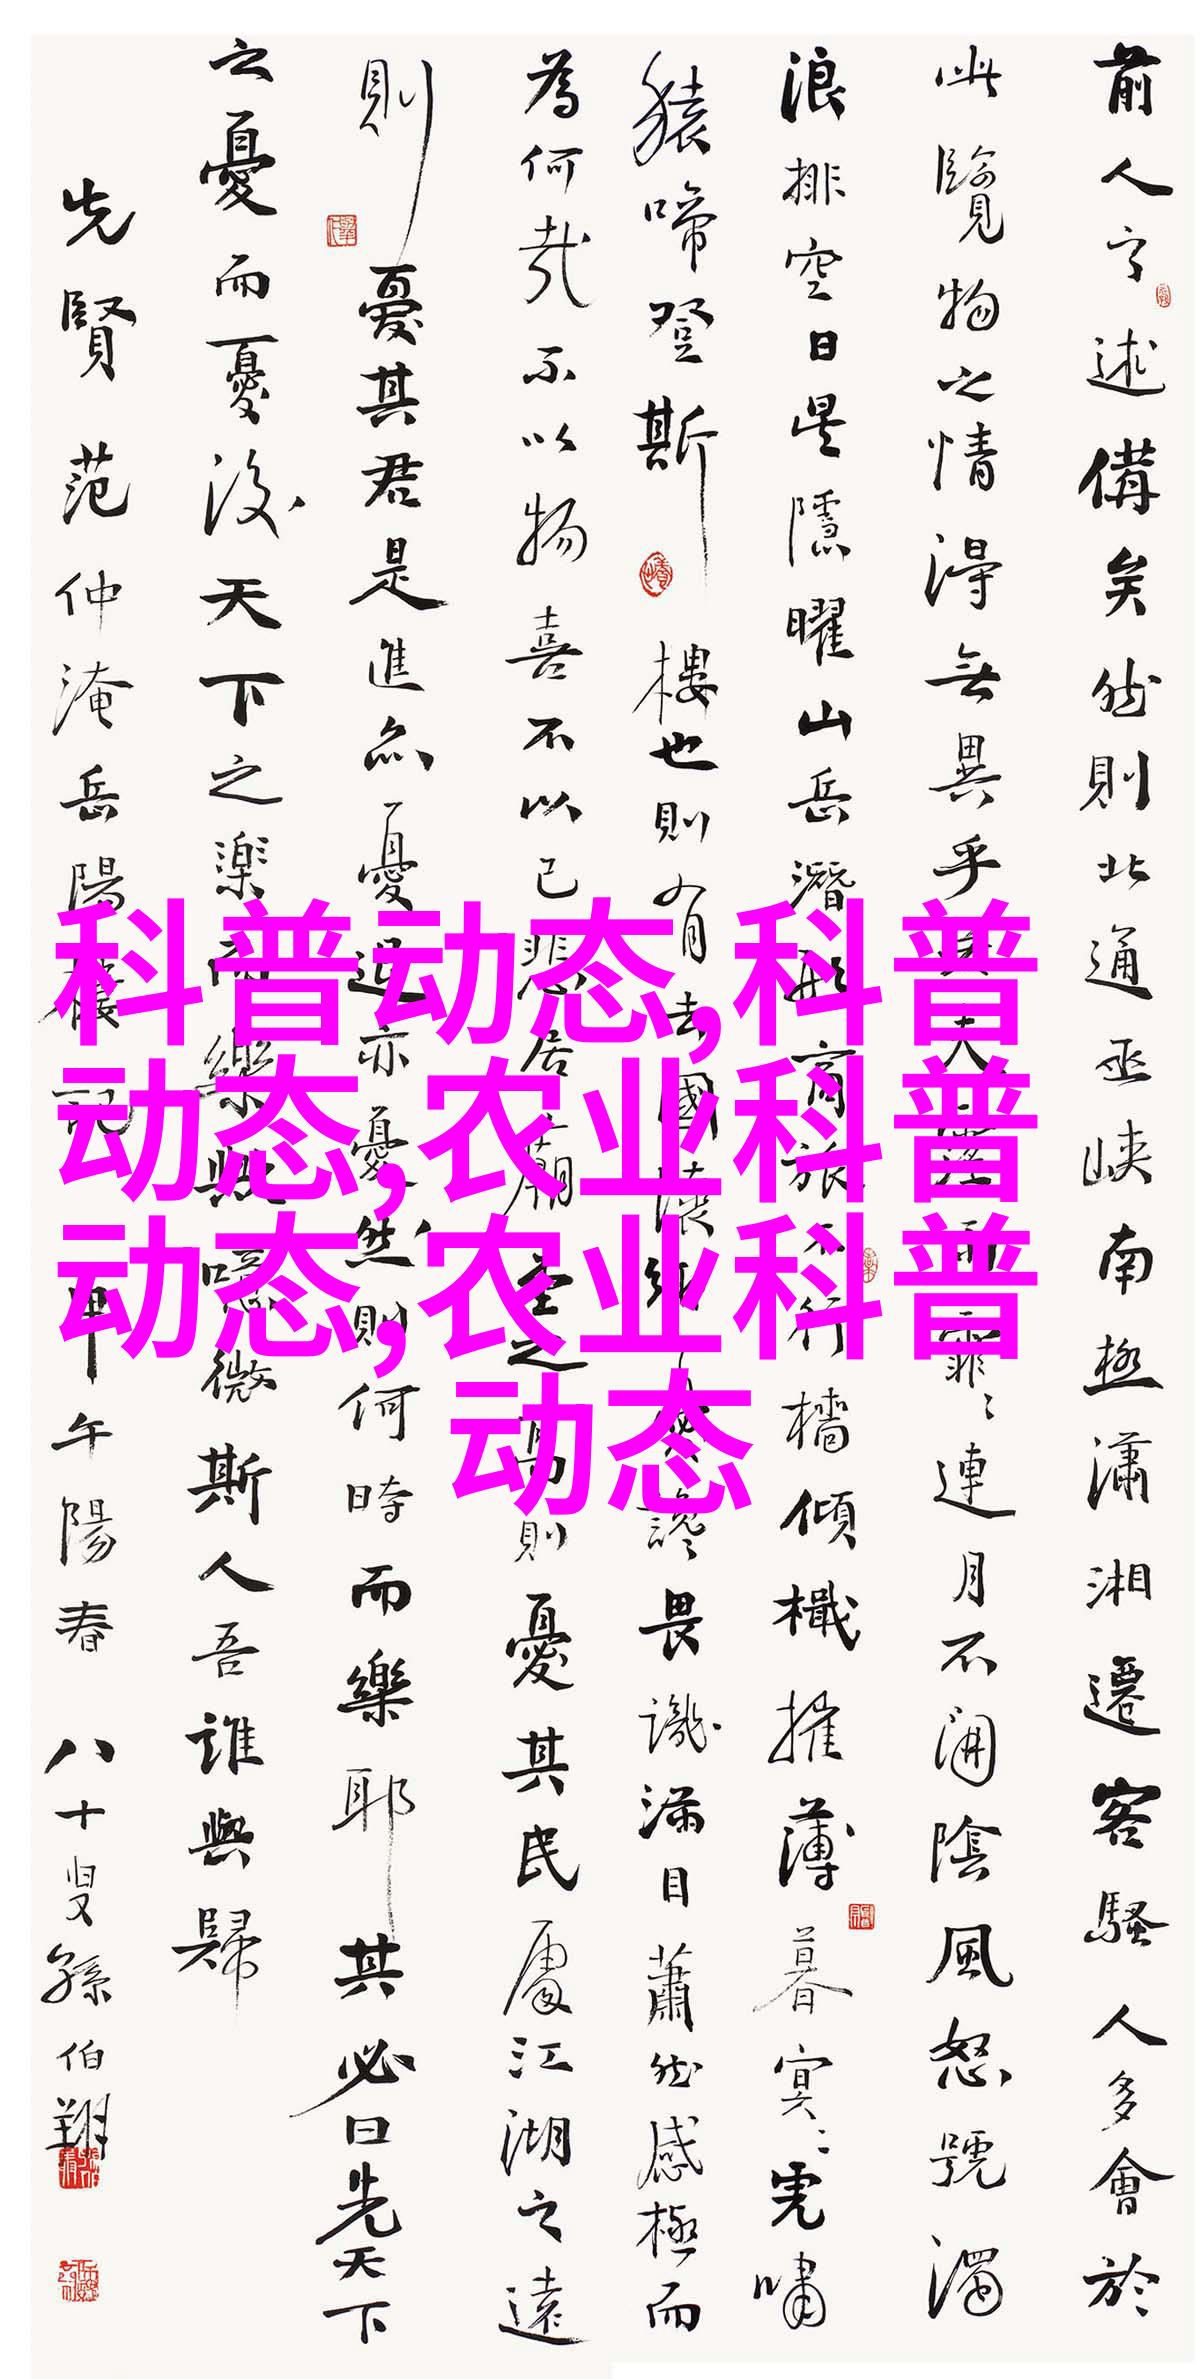 科普动态,科普
动态,农业科普
动态,农业科普
动态
前人之述備矣然則北通巫峽南極瀟湘遷客騷人多會於
此覽物之情得無異乎若夫霪雨霏〻連月不開陰風怒號濁
浪排空日星隱曜山岳潛形商旅不行檣傾檝摧薄暮冥〻虎嘯
猿啼登斯樓也則有去國懷鄉憂讒畏譏滿目蕭然感極而
為何哉不以物喜不以己悲居廟堂之高則憂其民處江湖之遠
則憂其君是進亦憂退亦憂然則何時而樂耶其必曰先天下
之憂而憂後天下之樂而樂歟噫微斯人吾誰與歸
先賢范仲淹岳陽樓記甲午陽春 八十叟孫伯翔